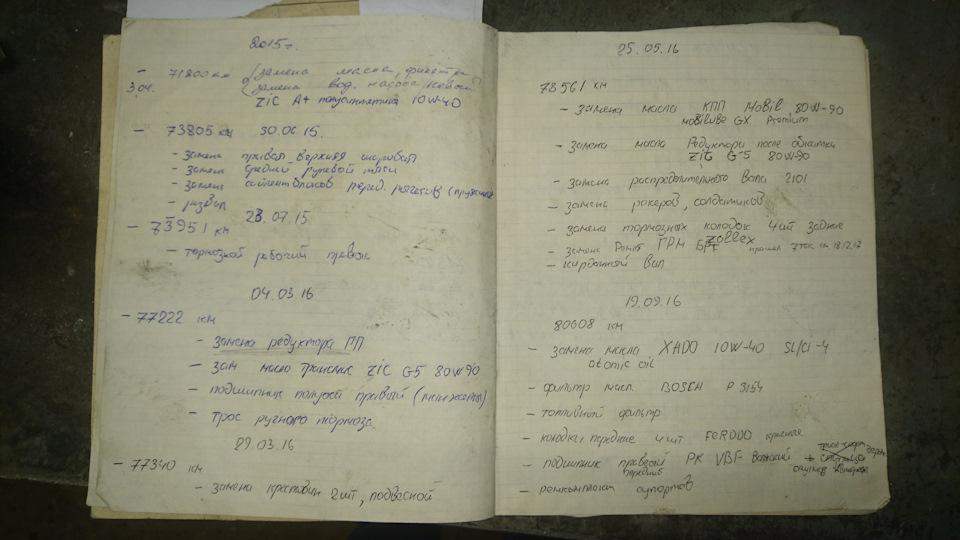 2015г.
- 71800 км (замена масла, фильтра
3.04. замена вод. насоса
ZIC A+ полусинтетика 10W-40
- 73805 км 30.06.15.
- замена правая верхняя шаровая
- замена средней рулевой тяги
- замена сайлентблоков перед. рычагов
- развал
23.07.15
- 73951 км
- тормозной рабочий правой
04.03.16
- 77222 км
- замена редуктора ГП
- зам масло трансмис ZIC G5 80W90
- подшипник полуоси правый
- трос ручного тормоза.
29.03.16
- 77340 км
- замена крестовин 2шт, подвесной
25.05.16
78561 км
- замена масла КПП Mobil 80W-90
Mobilube GX Premium
- замена масла Редуктора после обкатки
ZIC G-5 80W-90
- замена распределительного вала 2101
- замена рокеров, солдатиков
- замена тормозных колодок 4шт задние
zollex
- замена Ремня ГРМ БРТ
- карданный вал
19.09.16
80608 км
- замена масла XADO 10W-40 SL/CI-4
atomic oil
- фильтр масл. BOSCH P 3154
- топливный фильтр
- колодки передние 4шт FERODO красные
- подшипник правый РК VBF Волжский +
передний
- ремкомплект супортов